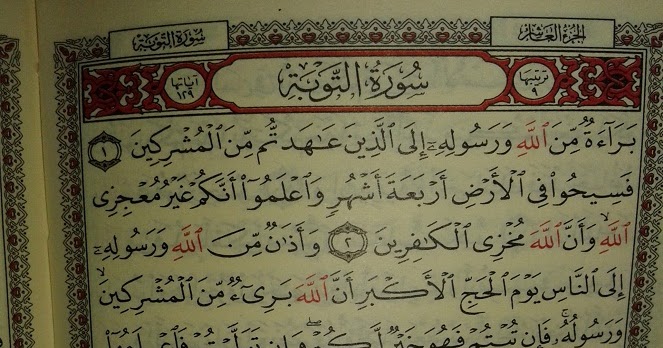 سُورَةُ التَّوْبَةِ
الجُزْءُ العَاشِرُ
ترتيبها ٩
سُورَةُ التَّوْبَةِ
آياتها ١٢٩
بَرَآءَةٌ مِّنَ ٱللَّهِ وَرَسُولِهِۦٓ إِلَى ٱلَّذِينَ عَٰهَدتُّم مِّنَ ٱلْمُشْرِكِينَ ١
فَسِيحُوا۟ فِى ٱلْأَرْضِ أَرْبَعَةَ أَشْهُرٍ وَٱعْلَمُوٓا۟ أَنَّكُمْ غَيْرُ مُعْجِزِى
ٱللَّهِ ۙ وَأَنَّ ٱللَّهَ مُخْزِى ٱلْكَٰفِرِينَ ٢ وَأَذَٰنٌ مِّنَ ٱللَّهِ وَرَسُولِهِۦٓ
إِلَى ٱلنَّاسِ يَوْمَ ٱلْحَجِّ ٱلْأَكْبَرِ أَنَّ ٱللَّهَ بَرِىٓءٌ مِّنَ ٱلْمُشْرِكِينَ ۙ
وَرَسُولُهُۥ ۚ فَإِن تُبْتُمْ فَهُوَ خَيْرٌ لَّكُمْ ۖ وَإِن تَوَلَّيْتُمْ فَٱعْلَمُوٓا۟